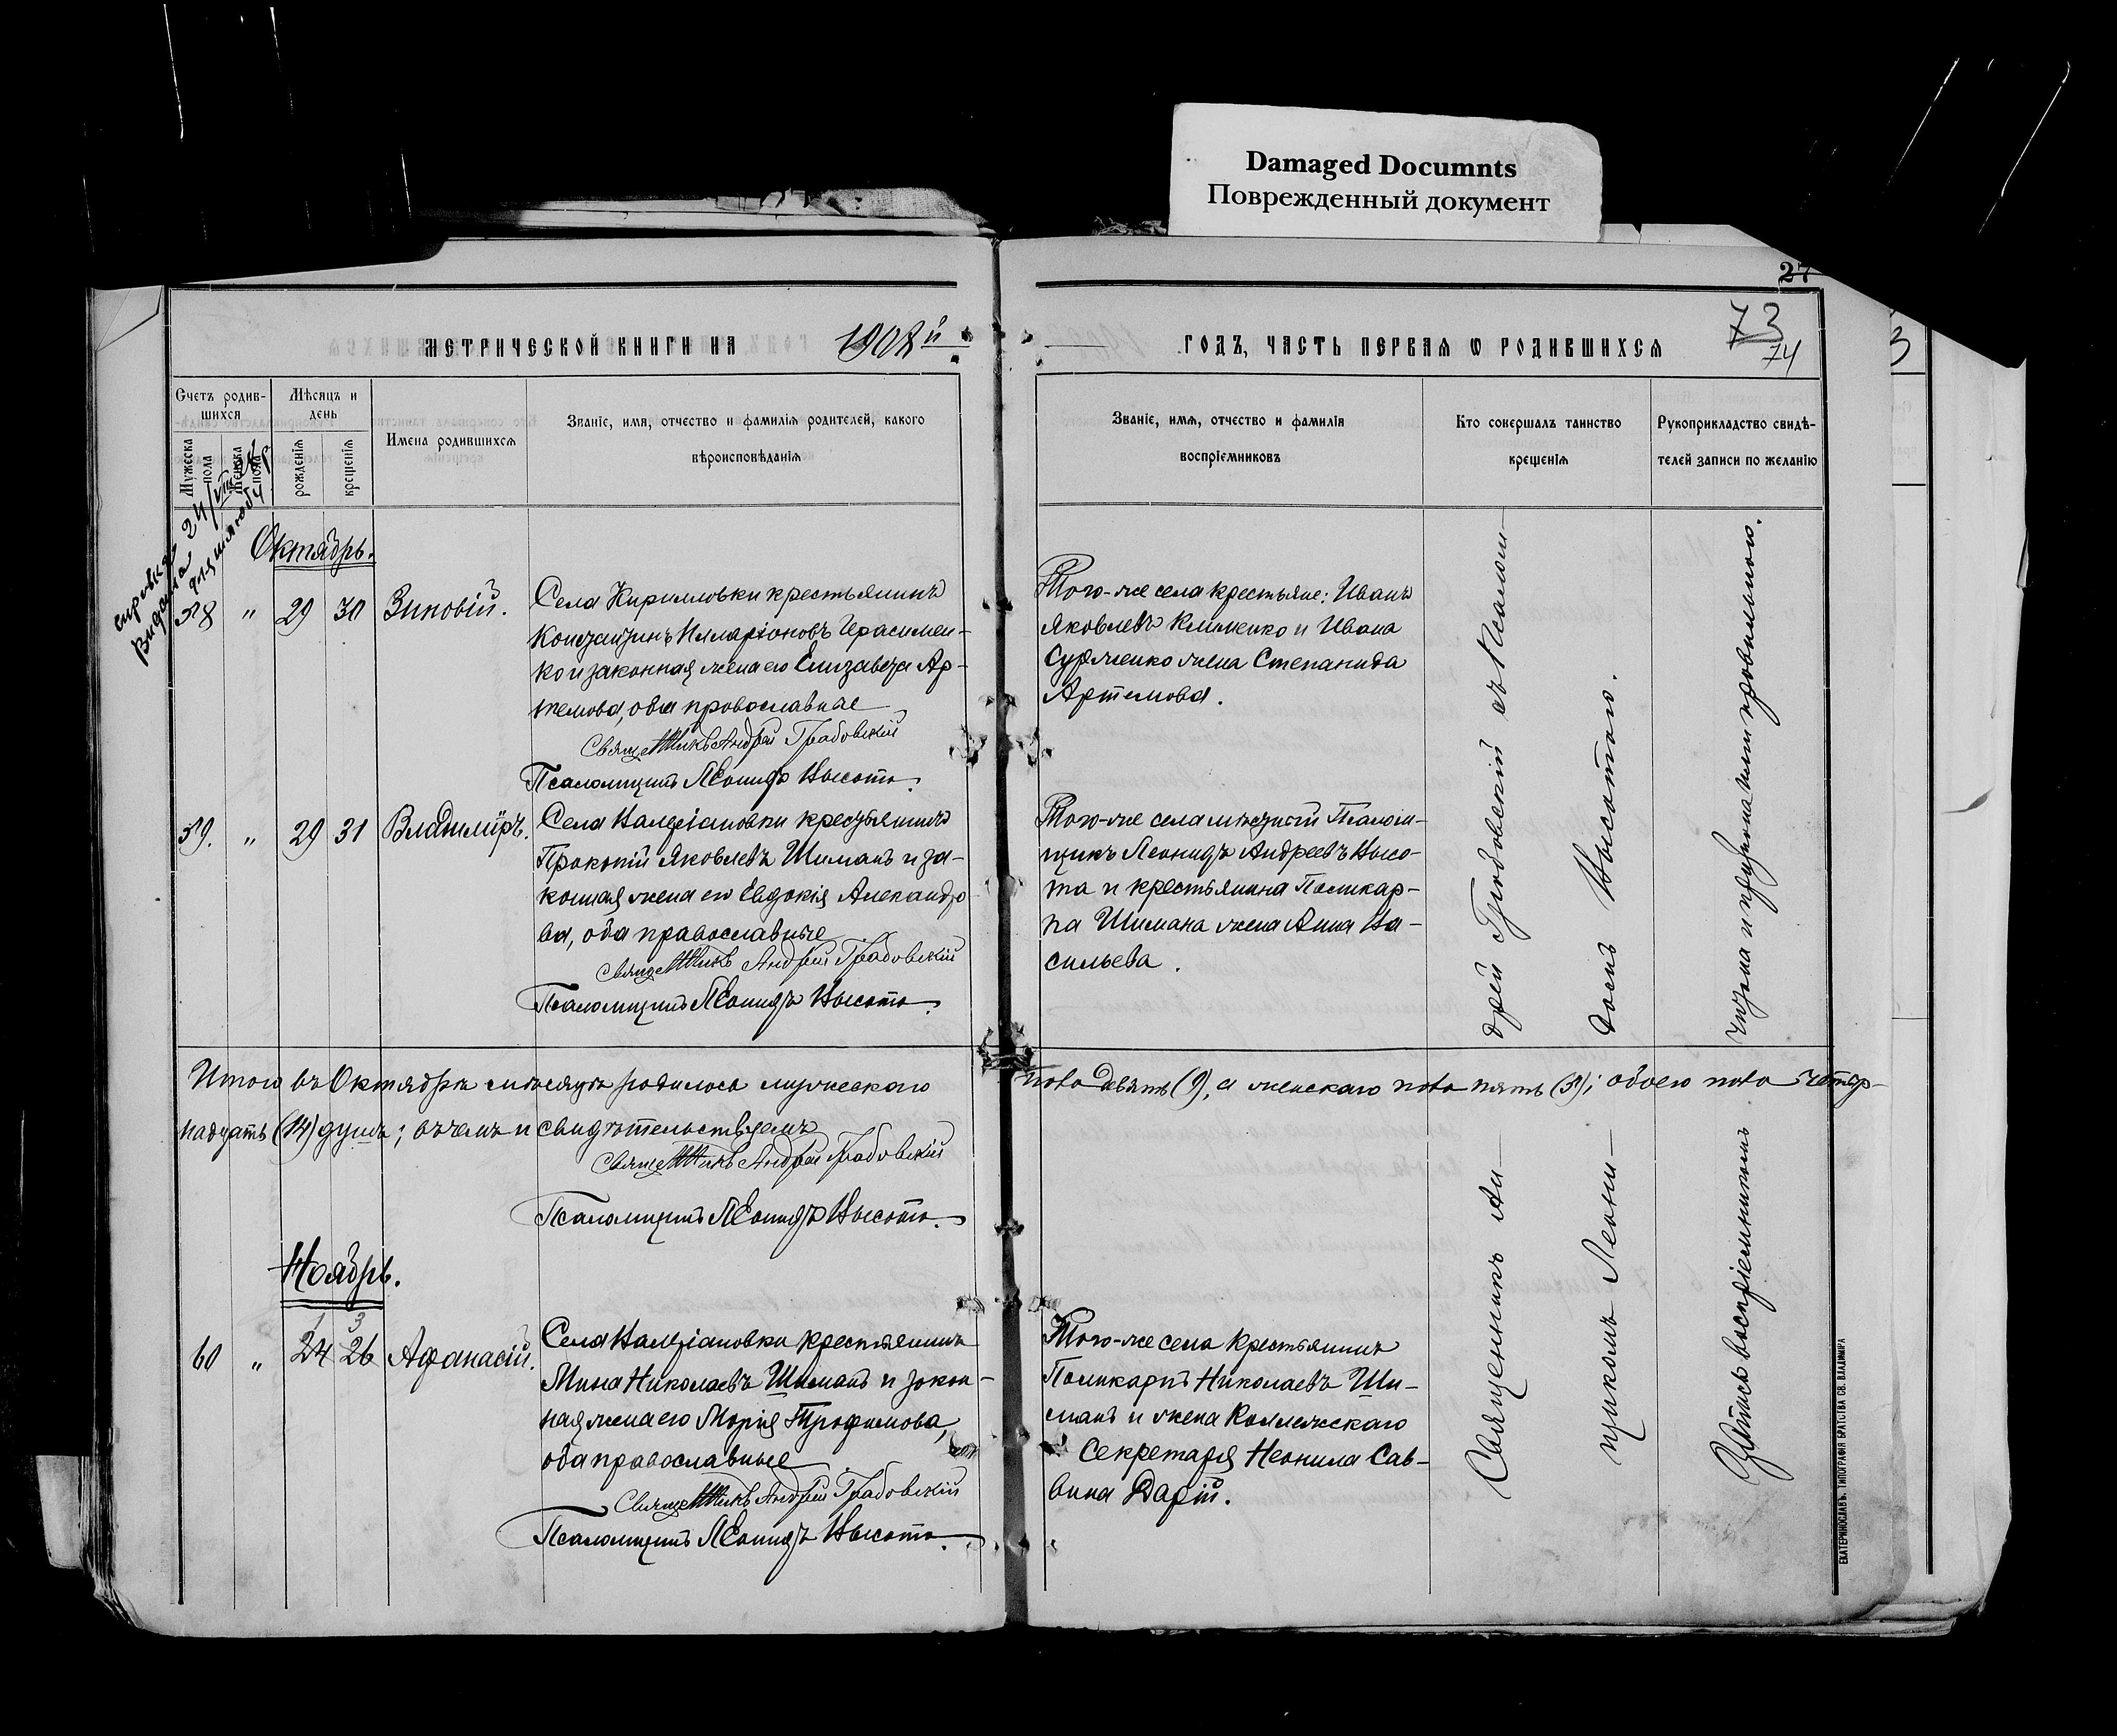 Damaged Documnts
Поврежденный документ
27
73
74
3
МЕТРИЧЕСКОЙ КНИГИ НА 1908й
ГОДЪ, ЧАСТЬ ПЕРВАЯ Ѡ РОДИВШИХСЯ
Счетъ родив-
шихся
Мужеска
пола
Женска
пола
Мѣсяцъ и
день
рожденія
крещенія
Имена родившихся
Званіе, имя, отчество и фамилія родителей, какого
вѣроисповѣданія
Званіе, имя, отчество и фамилія
воспріемниковъ
Кто совершалъ таинство
крещенія
Рукоприкладство свидѣ-
телей записи по желанію
справка
видана 24/VIII
для шлюбу
Октябрь.
58 " 29 30 Зиновій.
Села Кирилловки крестьянинъ
Константинъ Илларіоновъ Герасимен-
ко и законная жена его Елизавета Ар-
темова, оба православные
Священникъ Андрей Грабовскій
Псаломщикъ Леонидъ Высота.
Того-же села крестьяне: Иванъ
Яковлевъ Клименко и Ивана
Сурженко жена Степанида
Артемова.
59. " 29 31 Владиміръ.
Села Валеріановки крестьянинъ
Прокопій Яковлевъ Шиманъ и за-
конная жена его Евдокія Александро
ва, оба православные
Священникъ Андрей Грабовскій
Псаломщикъ Леонидъ Высота.
Того-же села мѣстный Псалом-
щикъ Леонидъ Андреевъ Высо-
та и крестьянина Поликар-
па Шимана жена Анна Ва-
сильева.
Итого въ Октябрѣ мѣсяцѣ родилось мужескаго пола девять (9), а женскаго пола пять (5); обоего пола четыр-
надцать (14) душъ; въ чемъ и свидѣтельствуемъ
Священникъ Андрей Грабовскій
Псаломщикъ Леонидъ Высота.
Ноябрь.
1 3
60 " 24 26 Афанасій.
Села Валеріановки крестьянинъ
Мина Николаевъ Шиманъ и закон-
ная жена его Марія Трофимова,
оба православные
Священникъ Андрей Грабовскій
Псаломщикъ Леонидъ Высота.
Того-же села крестьянинъ
Поликарпъ Николаевъ Ши-
манъ и жена Коллежскаго
Секретаря Неонила Сав-
вина Дарій.
Священникъ Ан-
дрей Грабовскій съ Псалом-
щикомъ Леони-
домъ Высотою.
воспріемникомъ
ЕКАТЕРИНОСЛАВЪ. ТИПОГРАФІЯ БРАТСТВА СВ. ВЛАДИМІРА